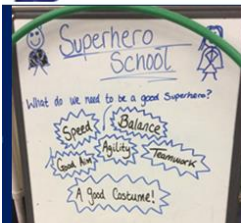 Superhero
School
What do we need to be a good Superhero?
Speed
Balance
Good Aim
Agility
Teamwork
A good Costume!